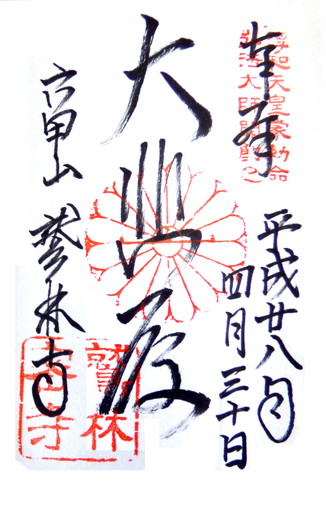 奉拝
淳和天皇勅命
弘法大師
平成廿八年
四月三十日
大悲殿
六甲山 鷲林寺
鷲林
寺